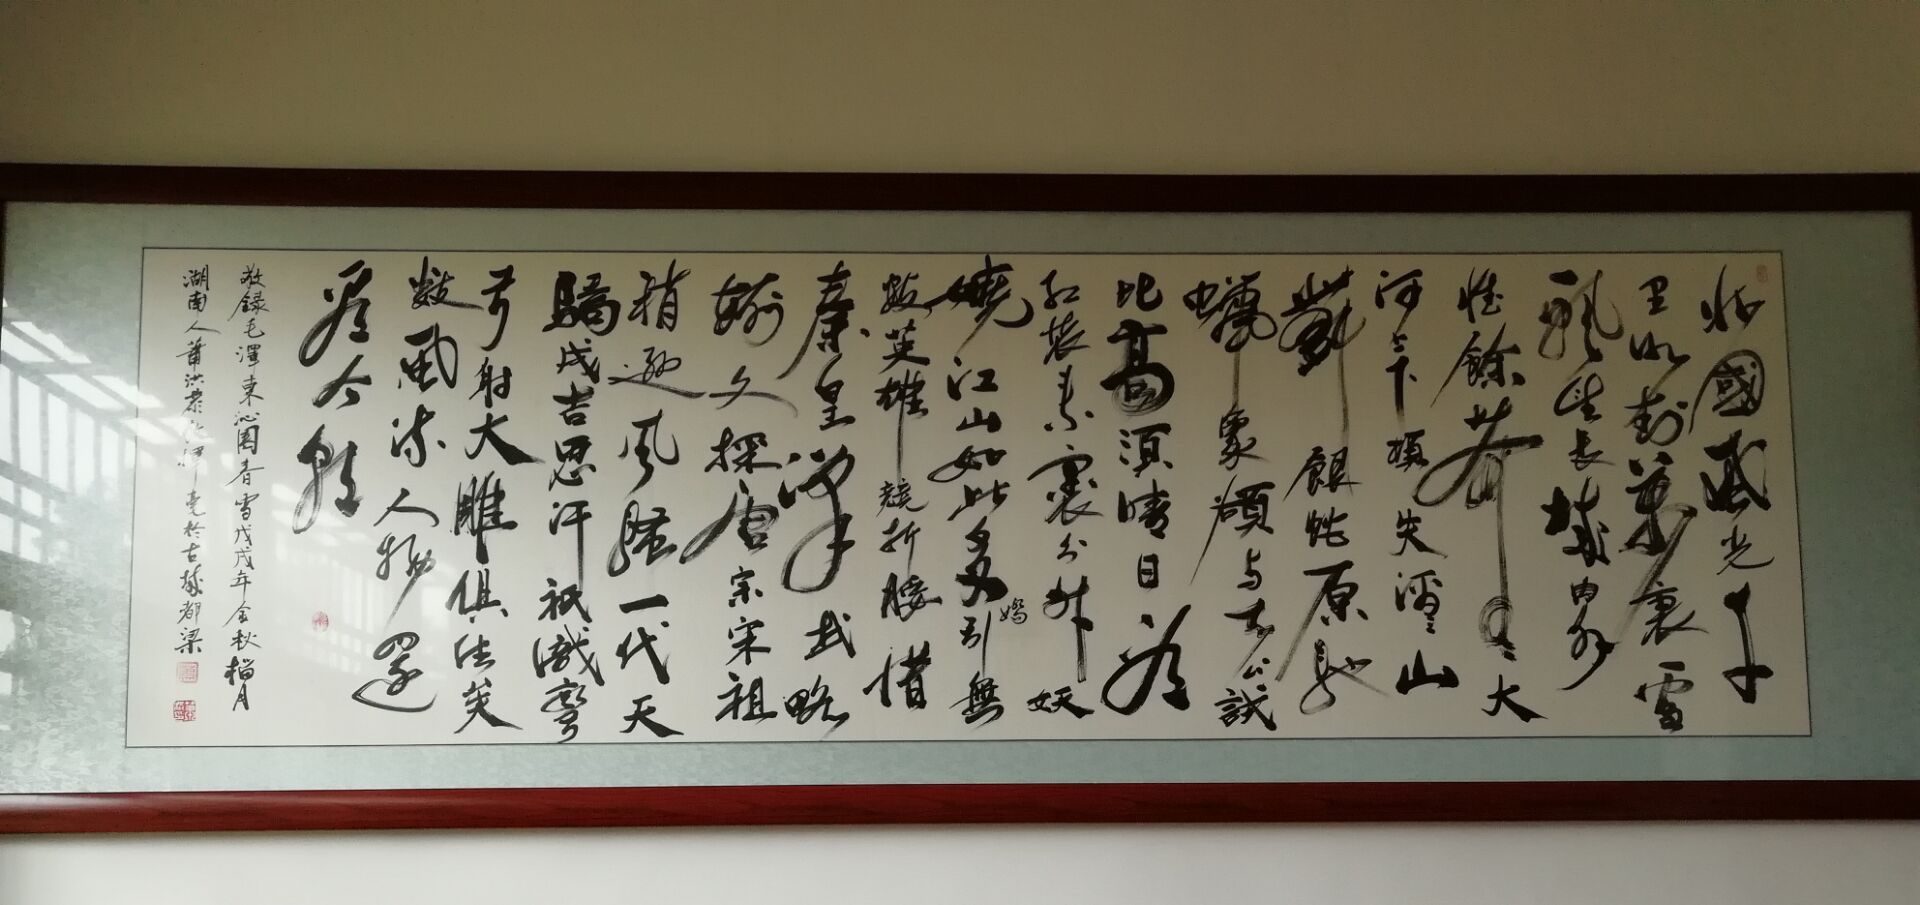 北國風光千
里冰封萬裏雪
飄望長城內外
惟餘莽莽大
河上下頓失滔滔山
舞銀蛇原馳
蠟象欲與天公試
比高須晴日看
紅裝素裹分外妖
嬈江山如此多嬌引無
數英雄競折腰惜
秦皇漢武略
輸文採唐宗宋祖
稍遜風騷一代天
驕成吉思汗衹識彎
弓射大雕俱往矣
數風流人物還
看今朝
敬録毛澤東沁園春雪戊戌年金秋月
湖南人蕭洪揮毫於古城都梁